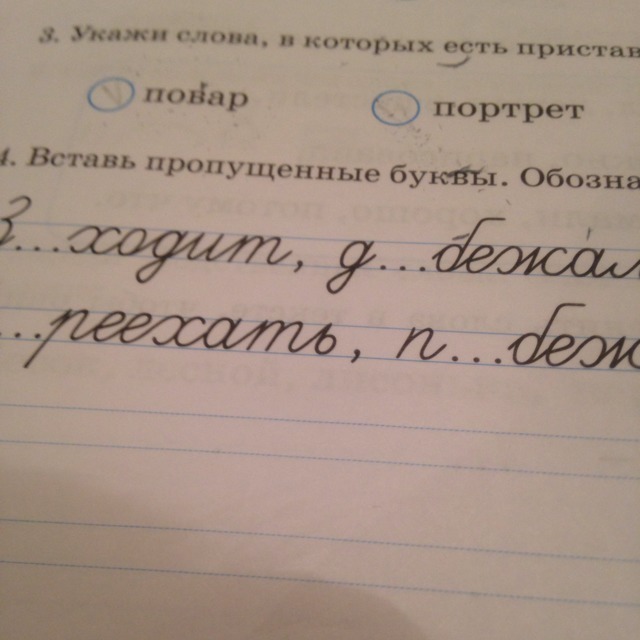 3. Укажи слова, в которых есть пристав
повар портрет
4. Вставь пропущенные буквы. Обозна
З...ходит, д...бежал
...реехать, п...беж